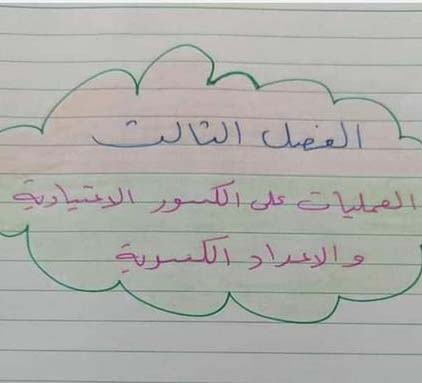 الفصل الثالث
العمليات على الكسور الاعتيادية
والاعداد الكسرية